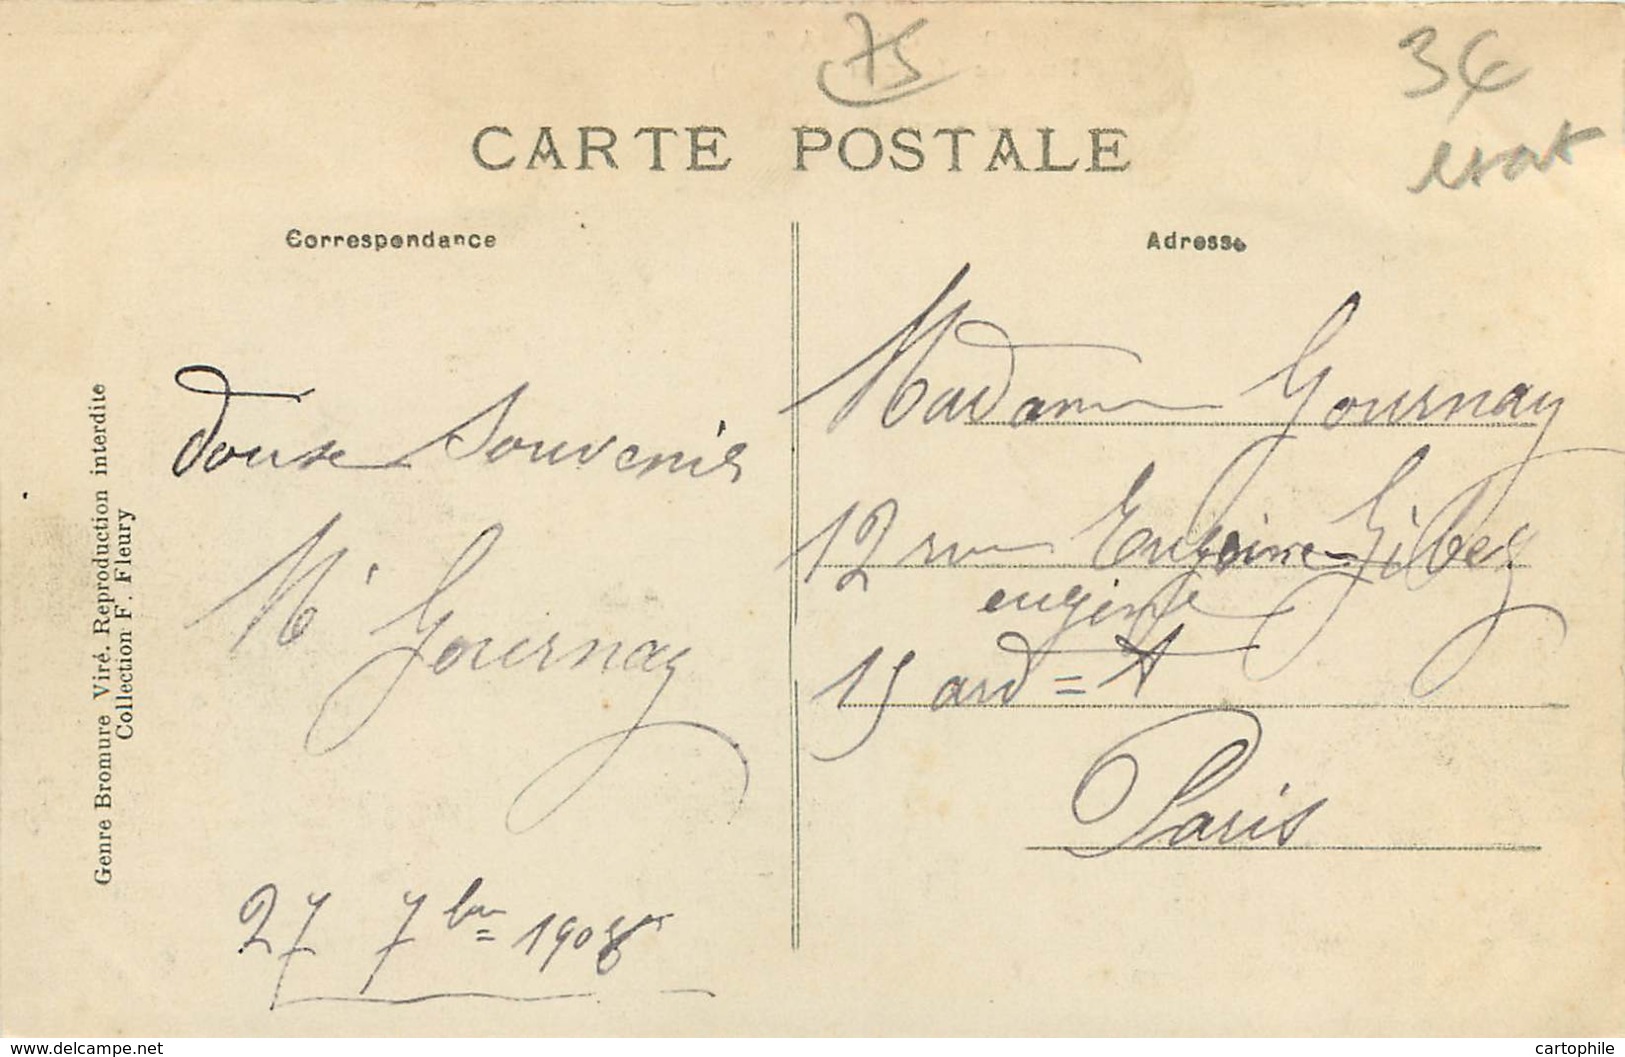 75
3€
CARTE POSTALE
Correspondance
Adresse
Genre Bromure Viré. Reproduction interdite
Collection F. Fleury
doux Souvenir
Mr Gournay
27 7bre 1908
Madame Gournay
12 rue Eugène Gibez
eugène
15 ardt
Paris
www.delcampe.net
cartophile